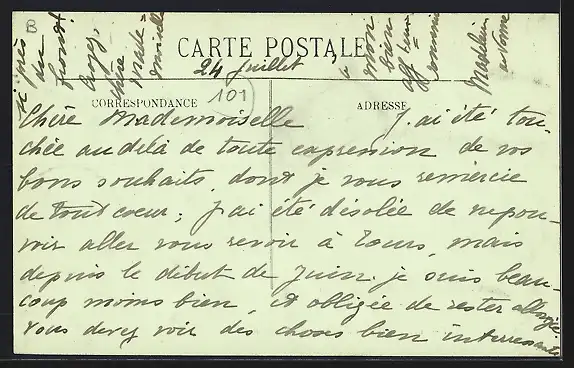 B
CARTE POSTALE
24 juillet
CORRESPONDANCE
101
ADRESSE
Chère Mademoiselle J'ai été tou-
chée au delà de toute expression de vos
bons souhaits, dont je vous remercie
de tout coeur; J'ai été désolée de ne pou-
voir aller vous revoir à Tours, mais
depuis le début de Juin je suis beau-
coup moins bien, et obligée de rester allongée.
Vous devez voir des choses bien interressantes
si près
du
front!
Croyez,
chère
Made-
moiselle
à
mon
bien
Madeleine